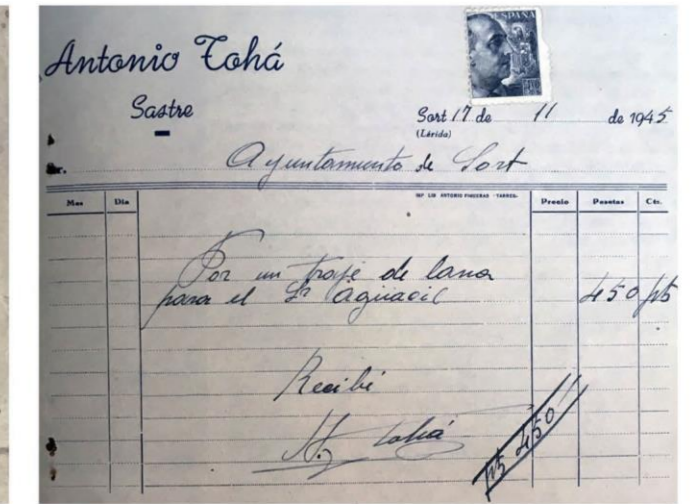 Antonio Tohá
Sastre
ESPAÑA
Sort 17 de 11 de 1945
(Lérida)
Sr. Ayuntamiento de Sort
Mes Día Precio Pesetas Cts.
Por un traje de lana
para el Sr Aguacil 450 pts
Recibí
A. Tohá
pts 450